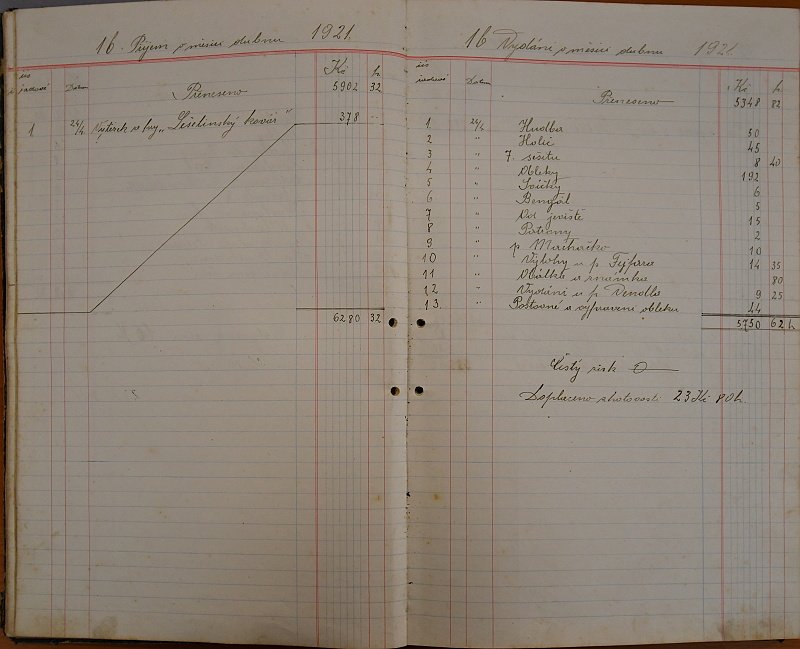 16. Příjem v měsíci dubnu 1921.
čís
jednací Datum Kč h
Přeneseno 5902 32
1 24/4 Výtěžek z hry „Lešetínský kovář" 378 --
6280 32
16 Vydání v měsíci dubnu 1921.
čís
jednací Datum Kč h
Přeneseno 5348 82
1 24/4 Hudba 50
2 " Holič 45
3 " 7 sešitů 8 40
4 " Obleky 192
5 " 6
6 " Bengál 5
7 " Od jeviště 15
8 " Patrony 2
9 " p. Macháčko 10
10 " Výlohy u p. Fejfara 14 35
11 " Obálka a známka 80
12 " Vydání u p. Vendla 9 25
13. " Poštovné a vypravení obleku 44
5750 62 h
Čistý zisk 0
Doplaceno z hotovosti 23 Kč 80 h.